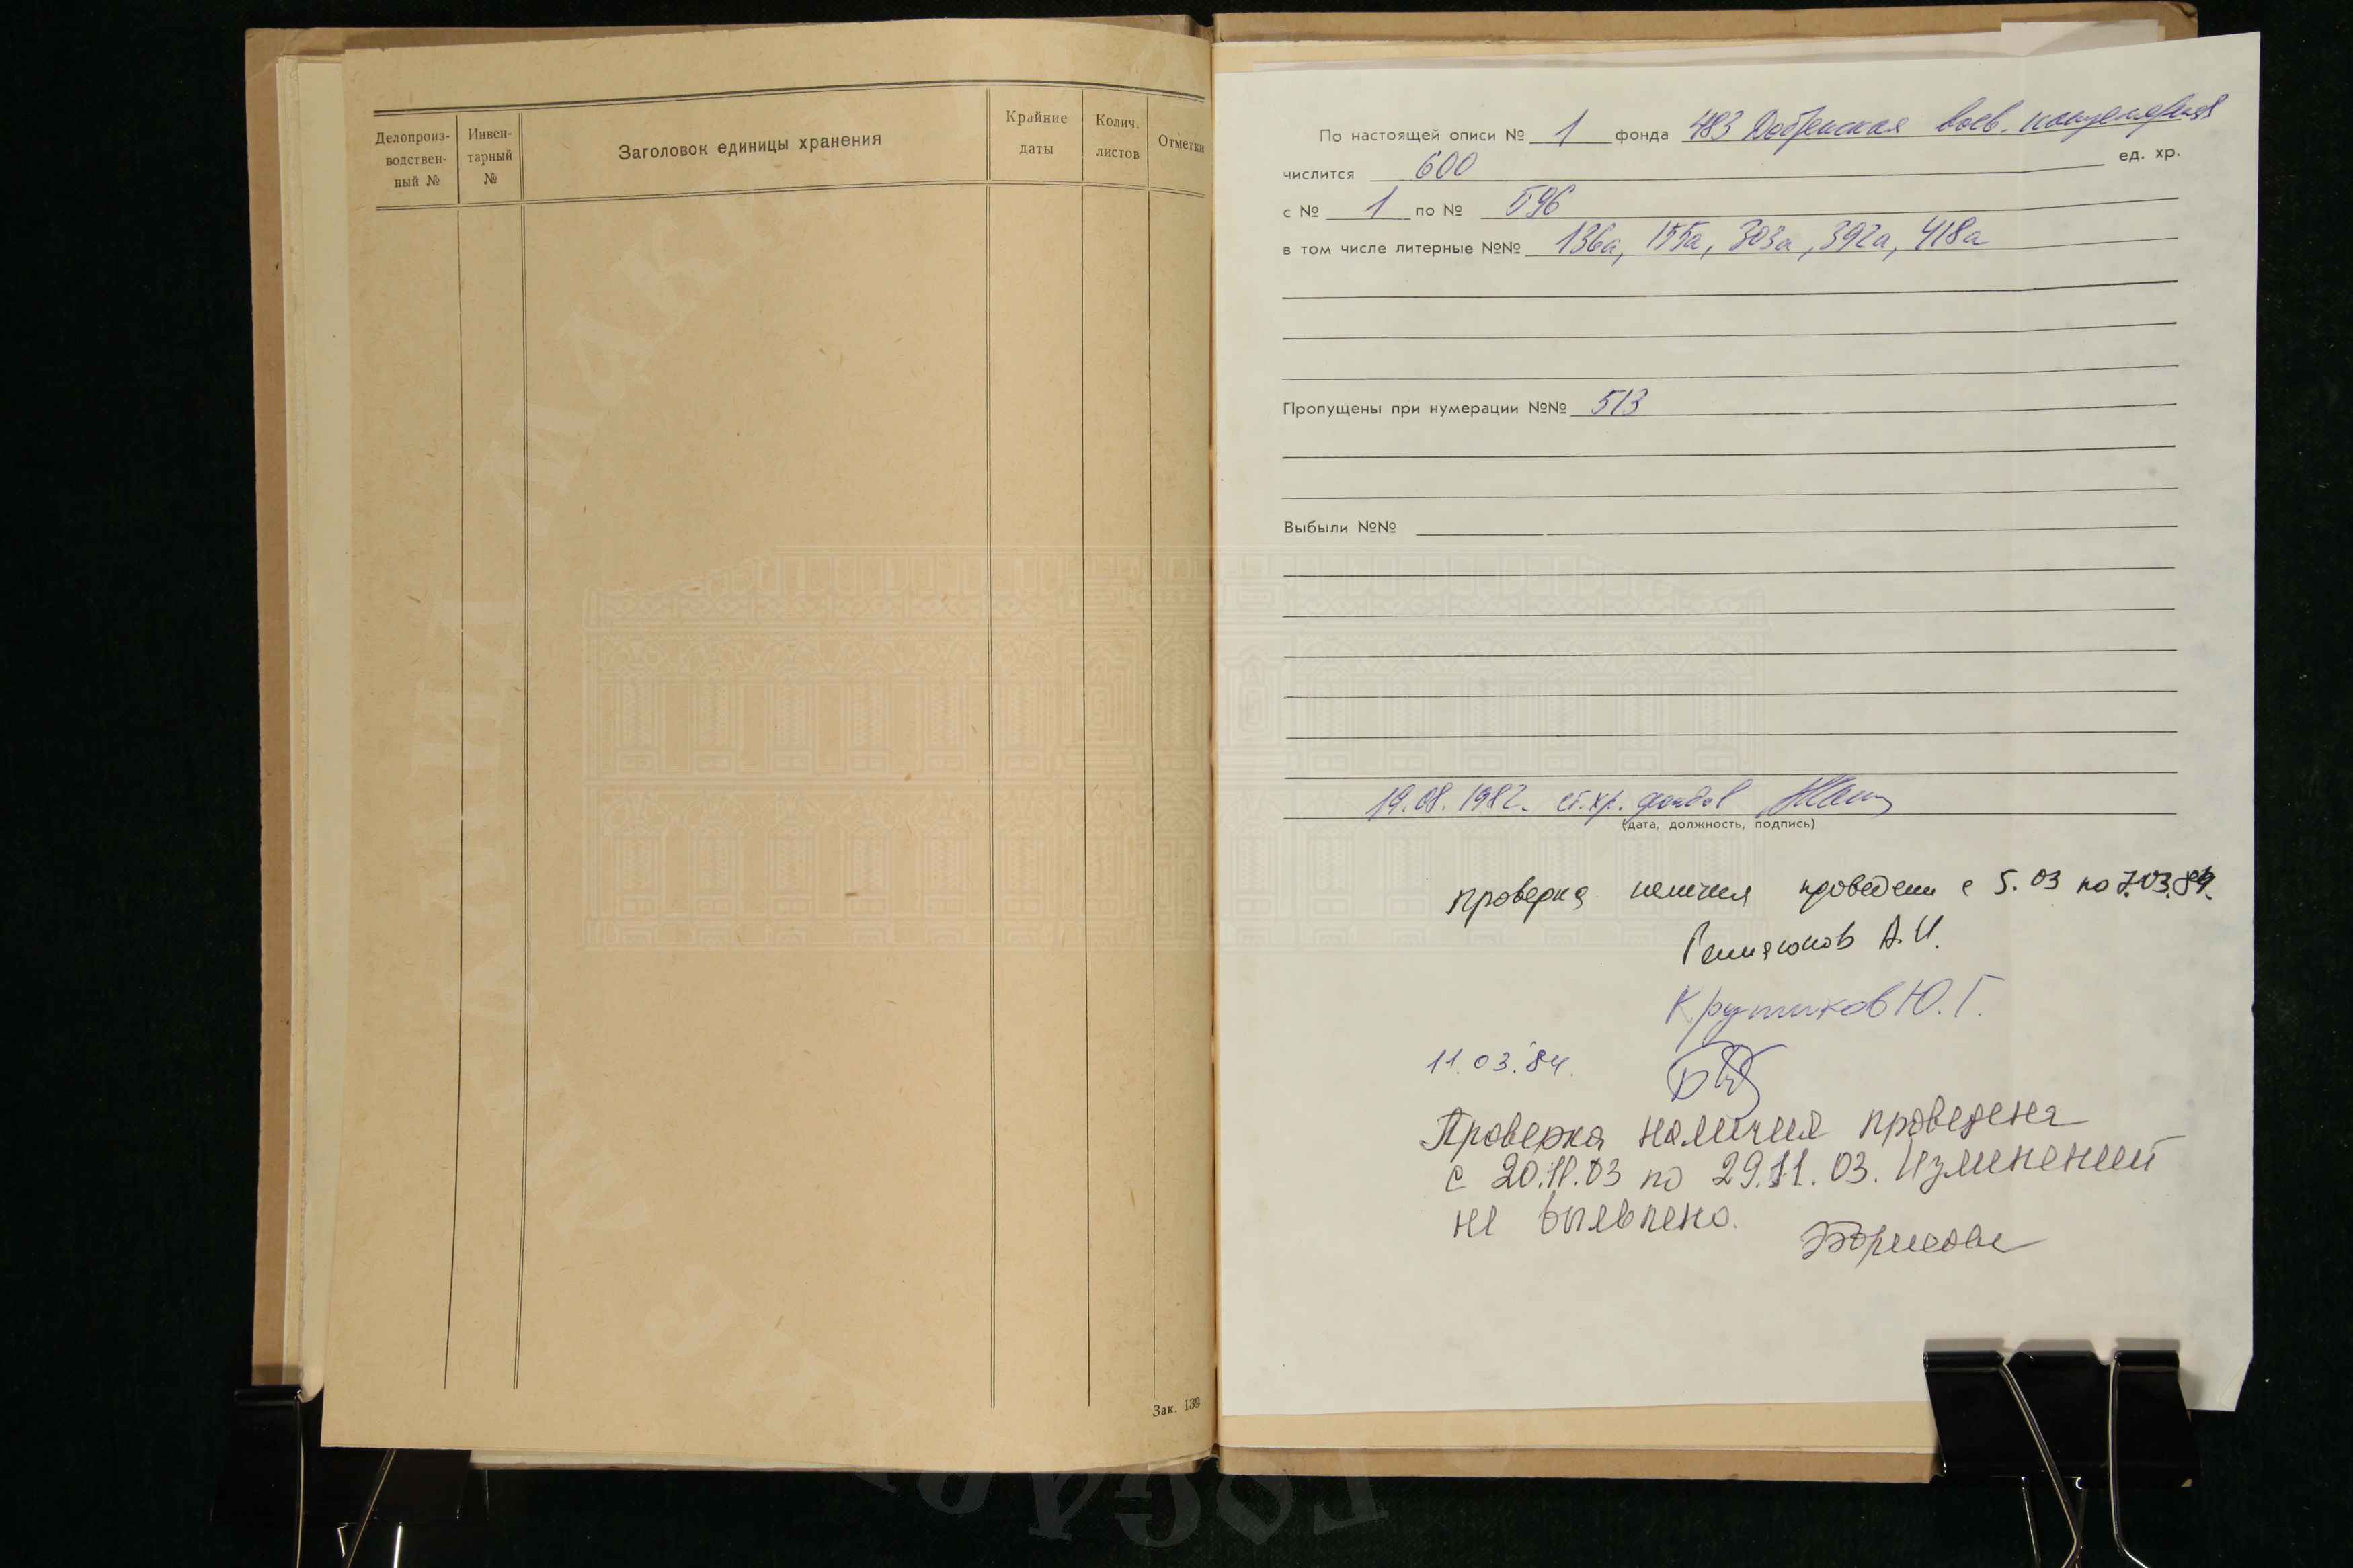 Делопроиз-
водствен-
ный №
Инвен-
тарный
№
Заголовок единицы хранения
Крайние
даты
Колич.
листов
Отметки
Зак. 139
По настоящей описи № 1 фонда 483 Добренская воев. канцелярия
числится 600 ед. хр.
с № 1 по № 596
в том числе литерные №№ 136а, 155а, 303а, 392а, 418а
Пропущены при нумерации №№ 513
Выбыли №№
19.08.1982. ст.хр. фондов
(дата, должность, подпись)
проверка наличия проведена с 5.03 по 7.03.84.
А.И.
Крутиков Ю.Г.
11.03.84.
Проверка наличия проведена
с 20.11.03 по 29.11.03. Изменений
не выявлено.